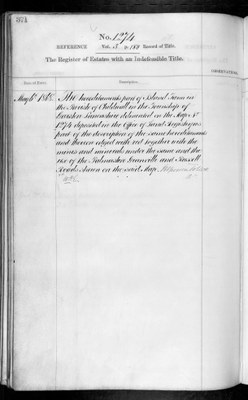 371
No. 1274
REFERENCE Vol. 3 p 189 Record of Title.
The Register of Estates with an Indefeasible Title.
Date of Entry. Description. OBSERVATIONS.
May 1st The hereditaments part of Island Farm in
the Parish of Childwall in the Township of
Garston Lancashire delineated on the Map No
1274 deposited in the Office of Land Registry as
part of the description of the same hereditaments
and thereon edged with red together with the
mines and minerals under the same and the
use of the Palmerston Granville and Russell
Roads shewn on the said Map.